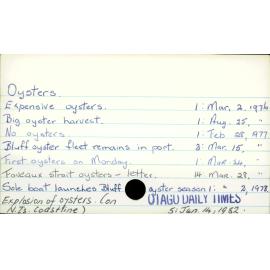 Oysters.
Expensive oysters. 1: Mar. 2, 1976
Big oyster harvest. 1: Aug. 25, "
No oysters. 1: Feb 28, 1977.
Bluff oyster fleet remains in port. 3: Mar. 15, "
First oysters on Monday. 1: Mar. 24, "
Foveaux strait oysters - letter. 14 Mar. 28, "
Sole boat launches Bluff oyster season 1: " 2, 1978.
Explosion of oysters. (on OTAGO DAILY TIMES
N.Z's. coastline) 5: Jan. 14, 1982.